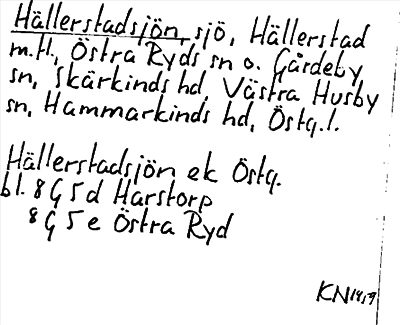 Hällerstadsjön, sjö, Hällerstad
m.fl., Östra Ryds sn o. Gårdeby
sn, Skärkinds hd, Västra Husby
sn, Hammarkinds hd, Östg.l.
Hällerstadsjön ek Östg.
bl. 8 G 5 d Harstorp
8 G 5 e Östra Ryd
KN